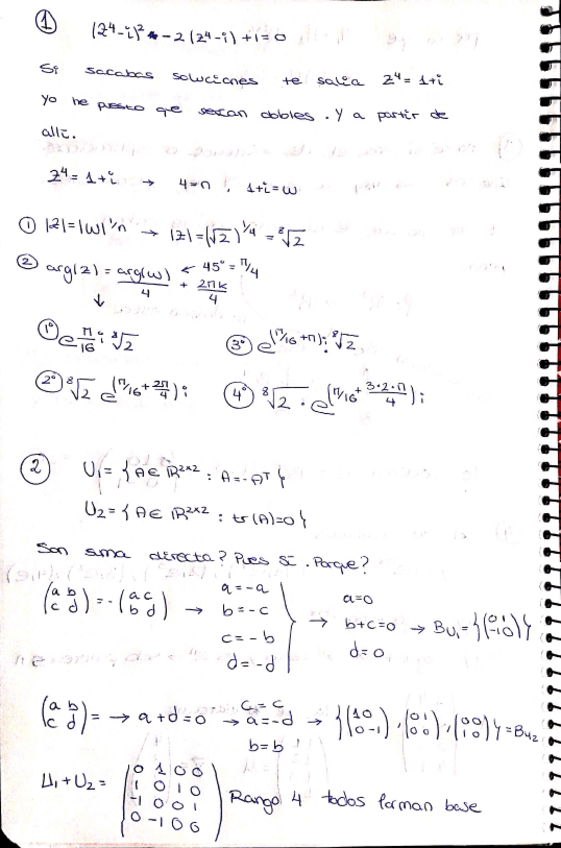 ① (z⁴-i)² - 2(z⁴-i) + 1 = 0
Si sacabas soluciones te salía z⁴ = 1+i
yo he puesto que serían dobles. Y a partir de
allí.
z⁴ = 1+i → 4=n, 1+i=w
① |z| = |w|^1/n → |z| = (√2)^1/4 = ⁸√2
② arg(z) = arg(w)/4 + 2πk/4 ← 45° = π/4
↓
1º e^(π/16 i) ⁸√2
3º e^(π/16+π)i ⁸√2
2º ⁸√2 e^(π/16+2π/4)i
4º ⁸√2 · e^(π/16+3·2·π/4)i
② U₁ = {A ∈ ℝ²ˣ² : A = -Aᵀ}
U₂ = {A ∈ ℝ²ˣ² : tr(A) = 0}
Son suma directa? Pues Sí. Porque?
(a b / c d) = -(a c / b d) → a=-a b=-c c=-b d=-d } → a=0 b+c=0 d=0 → B_U₁ = {(0 1 / -1 0)}
(a b / c d) = → a+d=0 → c=c a=-d b=b → {(1 0 / 0 -1), (0 1 / 0 0), (0 0 / 1 0)} = B_U₂
U₁+U₂ = (0 1 0 0 / 1 0 1 0 / -1 0 0 1 / 0 -1 0 0) Rango 4 todos forman base